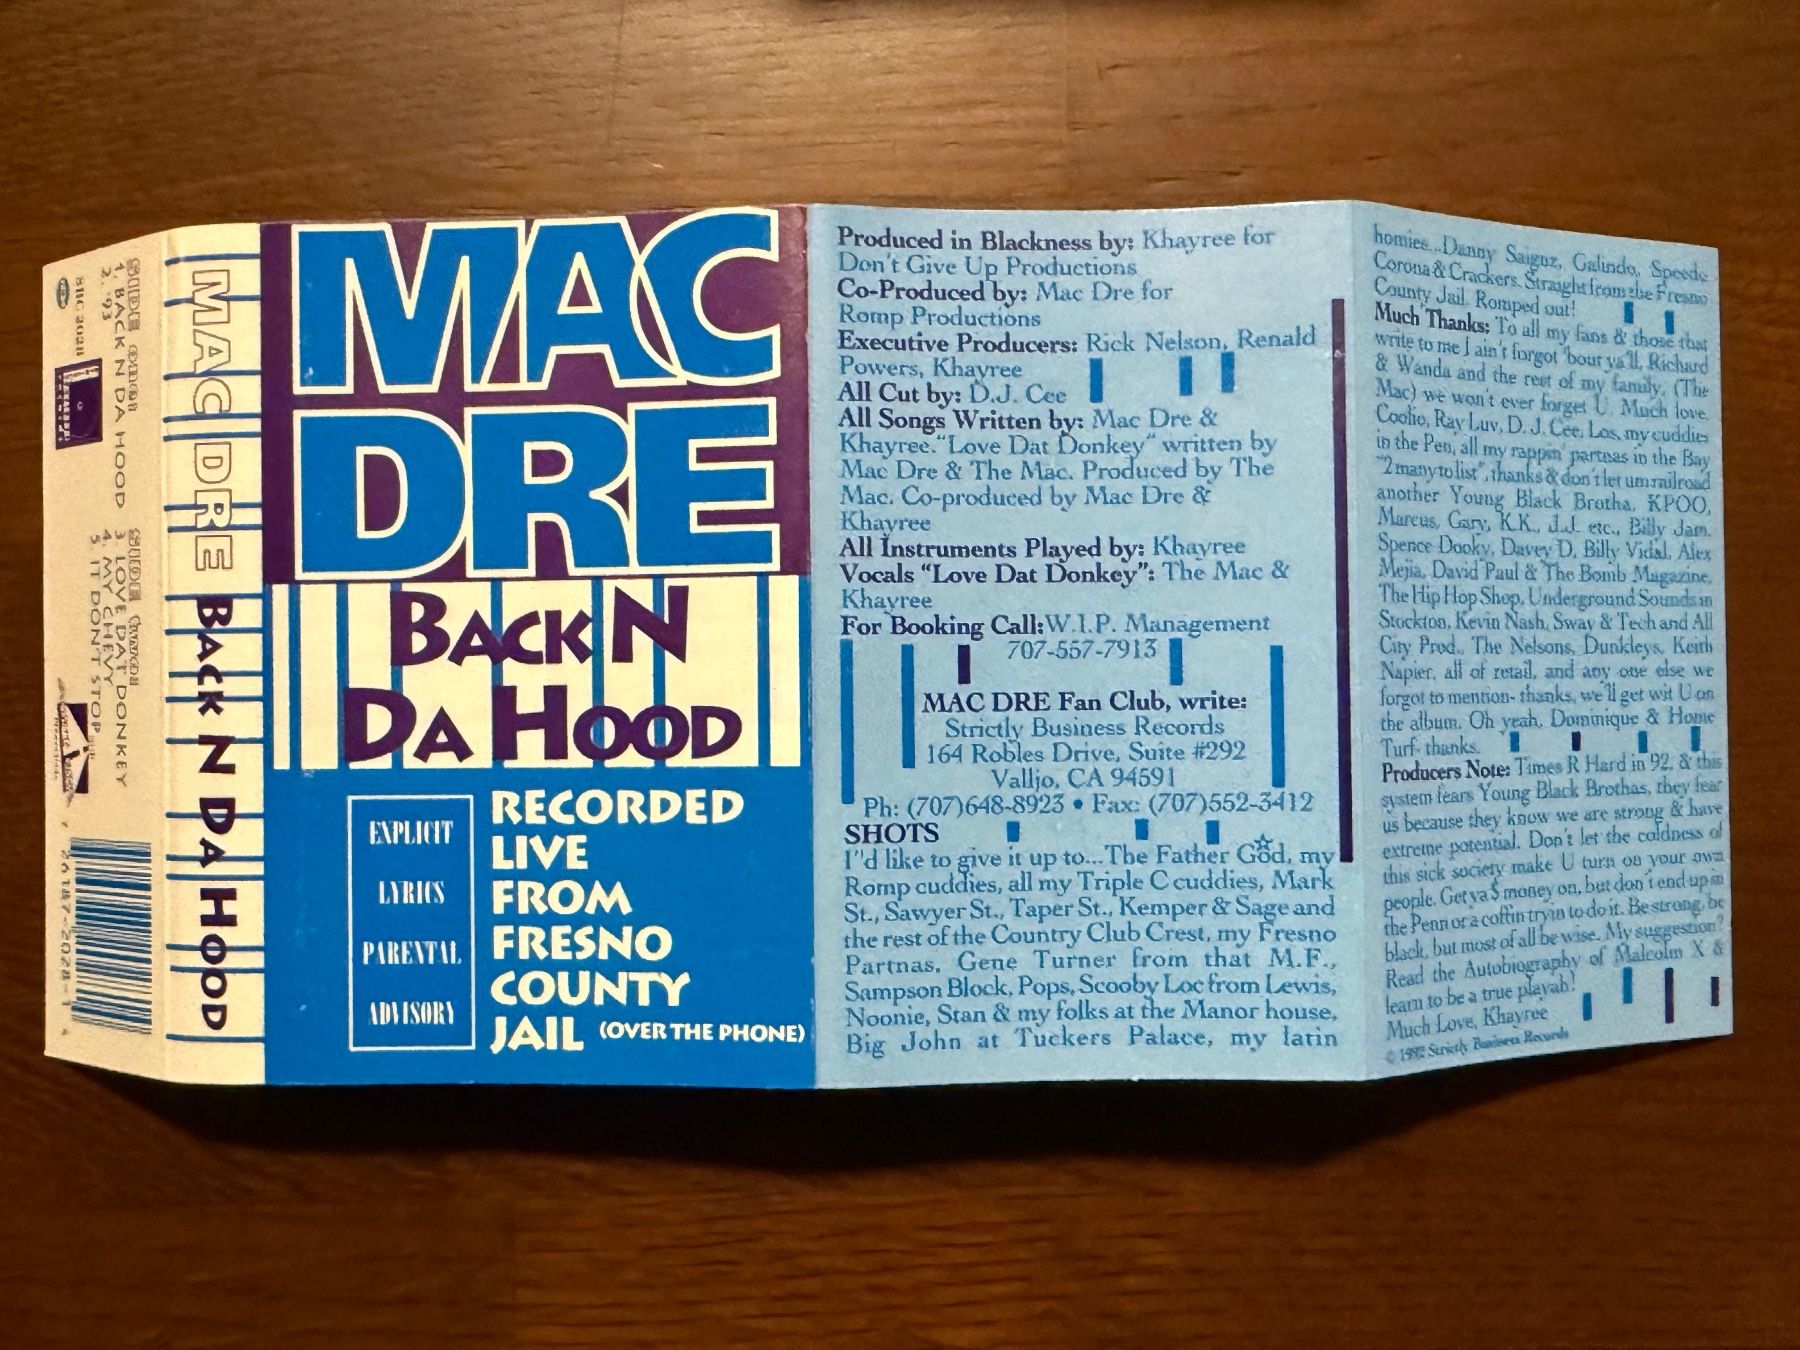 SIDE ONE
1. BACK N DA HOOD
2. '93
SIDE TWO
3. LOVE DAT DONKEY
4. MY CHEVY
5. IT DON'T STOP
MAC DRE BACK N DA HOOD
MAC
DRE
BACK N
DA HOOD
EXPLICIT
LYRICS
PARENTAL
ADVISORY
RECORDED
LIVE
FROM
FRESNO
COUNTY
JAIL (OVER THE PHONE)
Produced in Blackness by: Khayree for
Don't Give Up Productions
Co-Produced by: Mac Dre for
Romp Productions
Executive Producers: Rick Nelson, Renald
Powers, Khayree
All Cut by: D.J. Cee
All Songs Written by: Mac Dre &
Khayree. "Love Dat Donkey" written by
Mac Dre & The Mac. Produced by The
Mac. Co-produced by Mac Dre &
Khayree
All Instruments Played by: Khayree
Vocals "Love Dat Donkey": The Mac &
Khayree
For Booking Call: W.I.P. Management
707-557-7913
MAC DRE Fan Club, write:
Strictly Business Records
164 Robles Drive, Suite #292
Valljo, CA 94591
Ph: (707)648-8923 • Fax: (707)552-3412
SHOTS
I"d like to give it up to...The Father God, my
Romp cuddies, all my Triple C cuddies, Mark
St., Sawyer St., Taper St., Kemper & Sage and
the rest of the Country Club Crest, my Fresno
Partnas, Gene Turner from that M.F.,
Sampson Block, Pops, Scooby Loc from Lewis,
Noonie, Stan & my folks at the Manor house,
Big John at Tuckers Palace, my latin
homies...Danny Saignz, Galindo, Speedo
Corona & Crackers. Straight from the Fresno
County Jail. Romped out!
Much Thanks: To all my fans & those that
write to me I ain't forgot 'bout ya'll, Richard
& Wanda and the rest of my family, (The
Mac) we won't ever forget U. Much love,
Coolio, Ray Luv, D.J. Cee, Los, my cuddies
in the Pen, all my rappin' partnas in the Bay
"2 many to list", thanks & don't let um railroad
another Young Black Brotha, KPOO,
Marcus, Gary, K.K., J.J. etc., Billy Jam,
Spence Dooky, Davey D, Billy Vidal, Alex
Mejia, David Paul & The Bomb Magazine,
The Hip Hop Shop, Underground Sounds in
Stockton, Kevin Nash, Sway & Tech and All
City Prod., The Nelsons, Dunkleys, Keith
Napier, all of retail, and any one else we
forgot to mention- thanks, we'll get wit U on
the album. Oh yeah, Dominique & Home
Turf- thanks.
Producers Note: Times R Hard in 92, & this
system fears Young Black Brothas, they fear
us because they know we are strong & have
extreme potential. Don't let the coldness of
this sick society make U turn on your own
people. Get ya $ money on, but don't end up in
the Penn or a coffin tryin to do it. Be strong, be
black, but most of all be wise. My suggestion?
Read the Autobiography of Malcolm X &
learn to be a true playah!
Much Love, Khayree
© 1992 Strictly Business Records